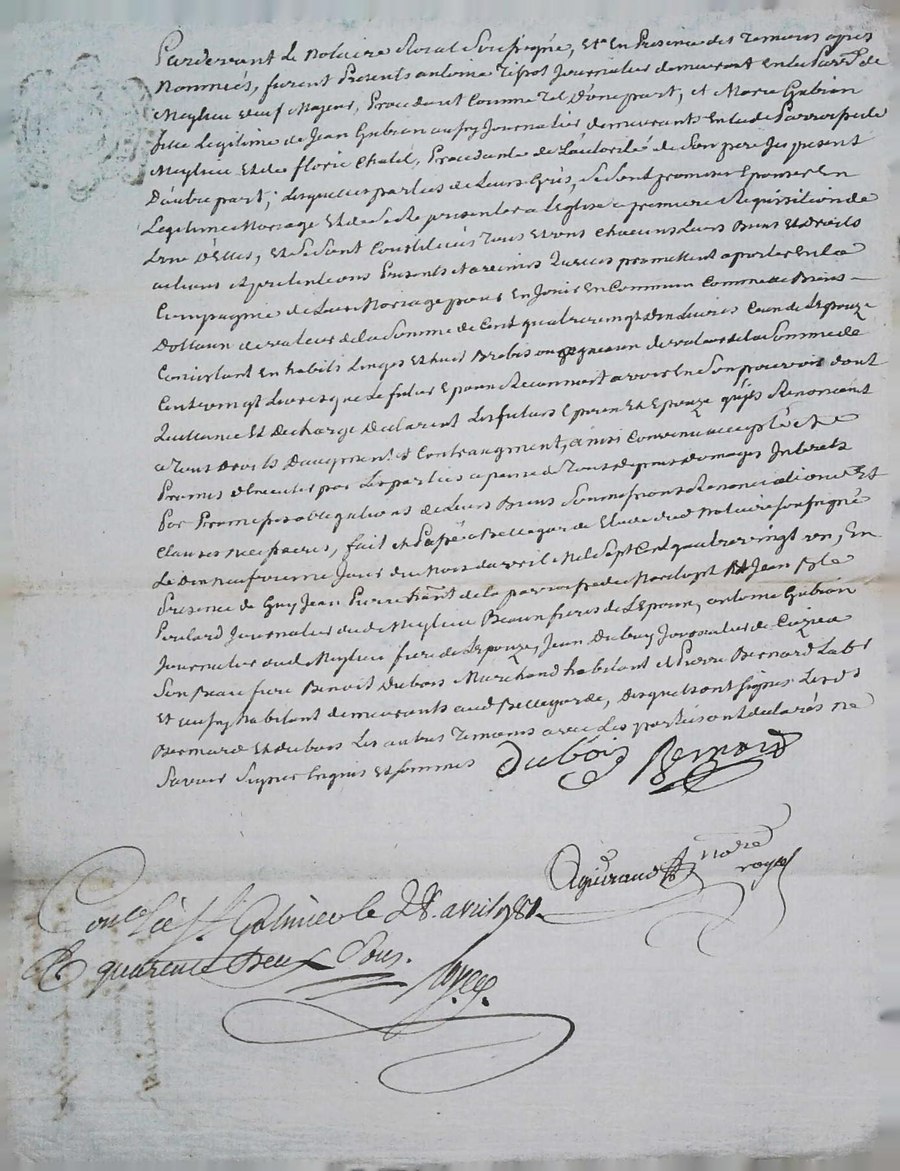 Pardevant Le Notaire Royal Soussigné, et En Presence des Temoins apres
Nommés, furent Presents antoine Journalier demeurant En la Parr. de
Meylieu neuf Majeur, Procedant Comme Tel D'une part, et Marie Gubian
fille Legitime de Jean Gubian aussy Journalier demeurants En lade Parroisse de
Meylieu Et de florie Chalel, Procedante de L'autorité de Son pere Icy present
D'autre part; Lesquelles parties de Leurs Grés, Se Sont promises Epouser En
Legitime Mariage Et de Se Representer a L'Eglise a premiere Requisition de
L'une D'Elles, Et Se Sont Constitués Tous Et uns Chacuns Leurs Biens Et Droits
actions et pretentions Presents et avenirs Quelles promettent aporter En la
Compagnie de Leur Mariage pour En Jouir En Commun Comme de Biens
Dottaux de valeur de la Somme de Cent quatre vingt dix Livres Ceux de L'Epouze
Consistant En habits Linges Et huit Brebis ou de valeur de la Somme de
Cent vingt Livres que Le futur Epoux Reconnoit avoir En Son pouvoir dont
Quittance Et decharge declarent Les futurs Epoux Et Epouze qu'ils Renoncent
a Tous droits D'augment et Contraugment, ainsi Convenu accepté et
Promis d'Executer par Les parties a peine de Tous depens domages Interets
Par Promesses obligations de Leurs Biens Soumissions Renonciations Et
Clauses necessaires, fait et Passé a Bellegarde Etude dud Notaire soussigné
Le dix neufvieme Jour du Mois d'avril Mil Sept Cent quatre vingt un, En
Presence de Guy Jean Pierre de la parroisse de Jean
Poulard Journalier dud Meylieu Beaux freres de L'Epoux, antoine Gubian
Journalier aud Meylieu frere de L'Epouze, Jean Dubuy Journalier de Cuzieu
Son Beau frere Benoit Dubois Marchand habitant et Pierre Bernard
Et aussy habitant demeurants aud Bellegarde, desquels ont Signés Lesds
Bernard Et dubois Les autres Temoins avec Les parties ont declarés ne
Savoir Signer Enquis Et Sommés Dubois Bernard
not.re
royal
St Galmier le 28 avril 1781
R quarente Deux Sous.